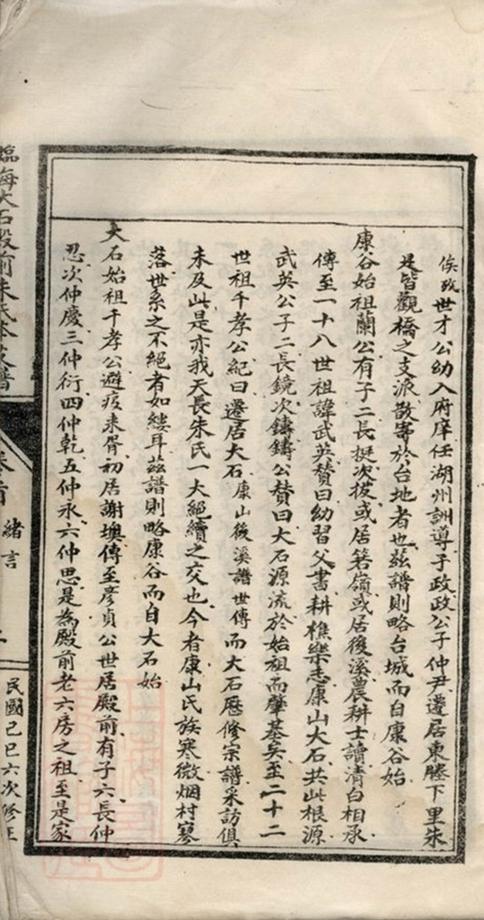 俟攷世才公幼入府庠任湖州訓導子政政公子仲尹遷居東塍下里朱
是皆觀橋之支派散寄於台地者也茲譜則略台城而自康谷始
康谷始祖蘭公有子二長挺次拔或居箬嶺或居後溪農耕士讀清白相承
傳至一十八世祖諱武英贊曰幼習父書耕樵樂志康山大石共此根源
武英公子二長鏡次鑄鑄公贊曰大石源流於始祖而肇基矣至二十二
世祖千孝公紀曰遷居大石康山後溪譜世傳而大石歷修宗譜采訪俱
未及此是亦我天長朱氏一大絕續之交也今者康山氏族寒微烟村寥
落世系之不絕者如縷耳茲譜則略康谷而自大石始
大石始祖千孝公避疫來胥初居謝墺傳至彥貞公世居殿前有子六長仲
忍次仲慶三仲衍四仲乾五仲永六仲思是為殿前老六房之祖至是家
臨海大石殿前朱氏
卷首
緒言
民國己巳六次修正